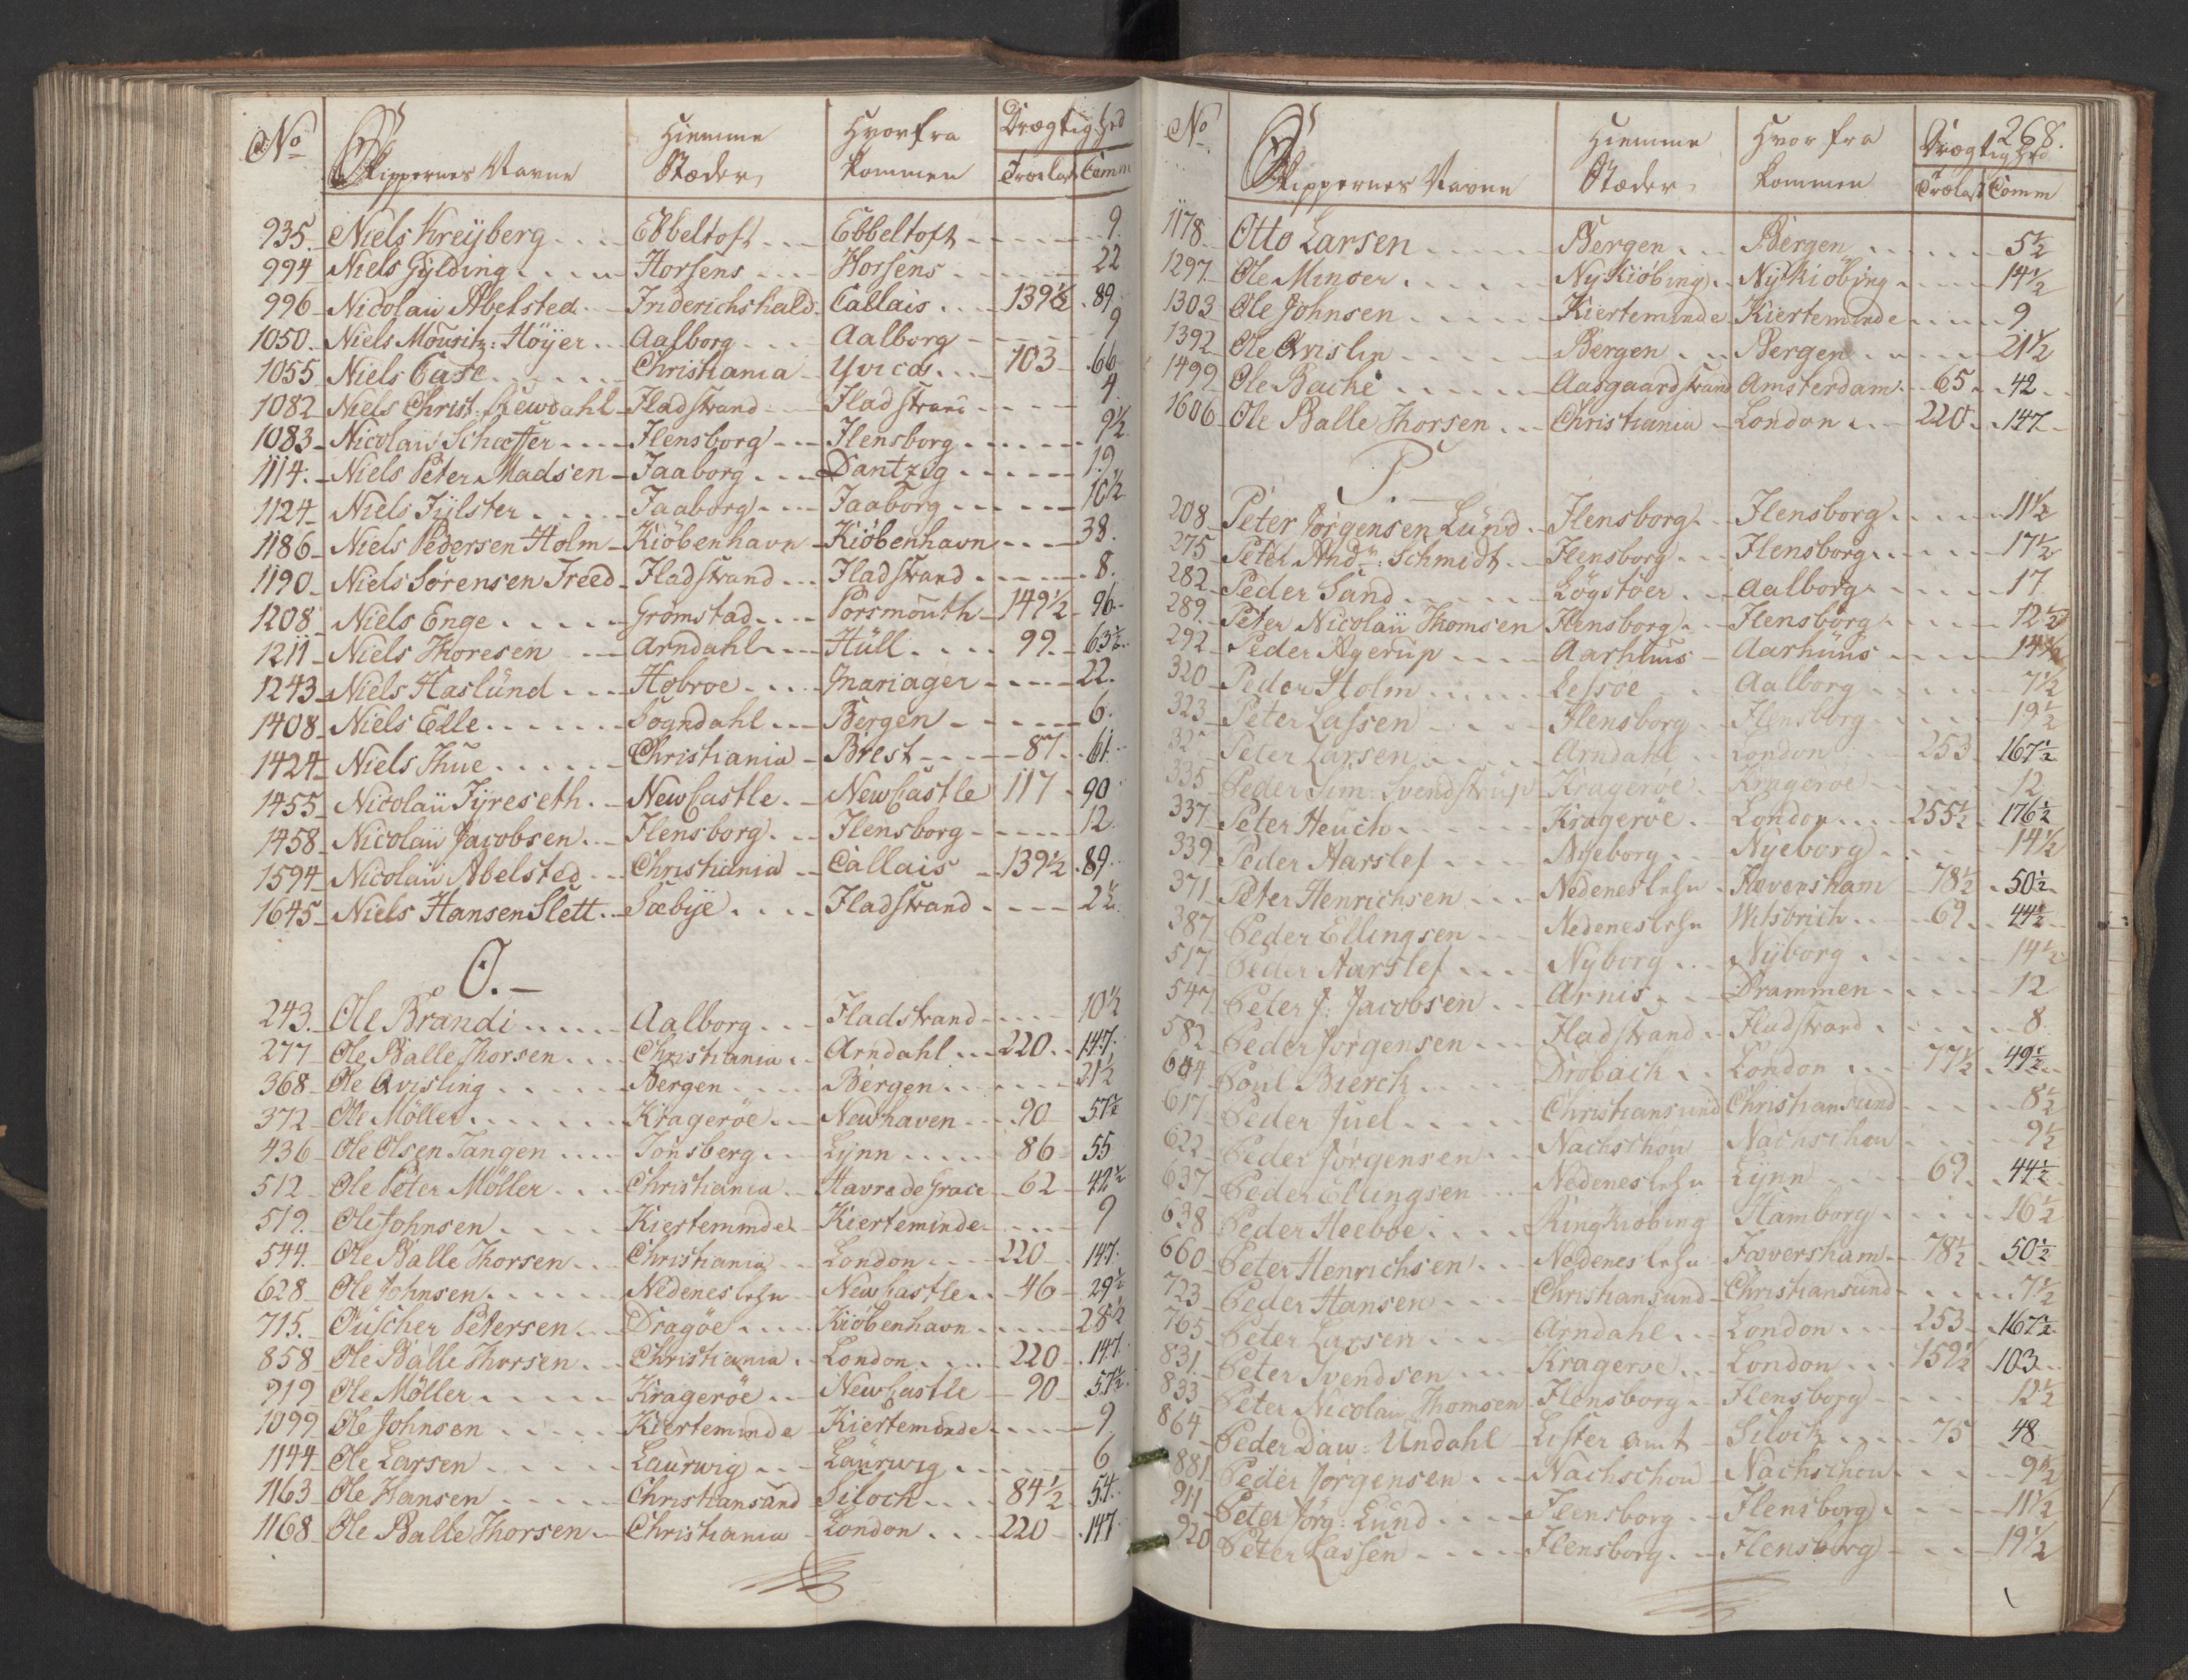 No Skippernes Navne Hiemme Stæder, Hvorfra kommen Drægtighed Trælast Comm
935. Niels Kreÿberg Ebbeltoft Ebbeltoft 9.
994 Niels Gÿlding Horsens Horsens 22
996 Nicolaü Abelsted Friderichshald Callais 139½ 89
1050. Niels Moüsitz: Höÿer Aalborg Aalborg 9
1055 Niels Case Christiania Yvica 103 66
1082 Niels Christ: Fladstrand Fladstrand 4.
1083 Nicolaü Schæffer Flensborg Flensborg 9½
1114. Niels Peter Madsen Faaborg Dantzig 19
1124 Niels Fÿlster Faaborg Faaborg 10½
1186 Niels Pedersen Holm Kiöbenhavn Kiöbenhavn 38.
1190 Niels Sörensen Freed Fladstrand Fladstrand 8.
1208 Niels Enge Gromstad Porsmouth 149½ 96
1211 Niels Thoresen Arndahl Hüll 99 63½
1243 Niels Haslünd Hobroe Mariager 22.
1408 Niels Elle Sogndahl Bergen 6.
1424 Niels Thue Christiania Brest 87 61
1455 Nicolaü Fÿreseth NewCastle NewCastle 117 90
1458 Nicolaü Jacobsen Flensborg Flensborg 12.
1594 Nicolaü Abelsted Christiania Callais 139½ 89
1645 Niels Hansen Slett Sæbÿe Fladstrand 2½
O.
243. Ole Brandi Aalborg Fladstrand 10½
277 Ole Balle Thorsen Christiania Arndahl 220 147.
368 Ole Qvisling Bergen Bergen 21½
372 Ole Möller Krageröe Newhaven 90 57½
436 Ole Olsen Tangen Tonsberg Lÿnn 86 55
512 Ole Peter Möller Christiania Havre de Grace 62 42½
519. Ole Johnsen Kierteminde Kierteminde 9
544. Ole Balle Thorsen Christiania London 220 147.
628 Ole Johnsen Nedeneslehn NewCastle 46 29½
715. Oüscher Petersen Dragöe Kiöbenhavn 28½
858 Ole Balle Thorsen Christiania London 220 147
919 Ole Möller Krageröe NewCastle 90 57½
1099 Ole Johnsen Kierteminde Kierteminde 9
1144 Ole Larsen Laürwig Laürwig 6
1163 Ole Hansen Christiansand Siloch 84½ 54.
1168 Ole Balle Thorsen Christiania London 220 147
268.
No Skippernes Navne Hiemme Stæder Hvorfra kommen Drægtighed Trælast Comm
1178 Otto Larsen Bergen Bergen 5½
1297. Ole Minser Nykiöbing Nÿkiöbing 14½
1303 Ole Johnsen Kierteminde Kierteminde 9
1392 Ole Qvislin Bergen Bergen 21½
1499 Ole Backe Aasgaardstrand Amsterdam 65 42
1606 Ole Balle Thorsen Christiania London 220 147
P.
208 Peter Jörgensen Lünd Flensborg Flensborg 11½
275 Peter And: Schmidt Flensborg Flensborg 17½
282 Peder Sand Lögstöer Aalborg 17
289. Peter Nicolaü Thomsen Flensborg Flensborg 12½
292 Peder Agerup Aarhüus Aarhüus 14½
320 Peder Holm Lessöe Aalborg 7½
323 Peter Lassen Flensborg Flensborg 19½
Peter Larsen Arndahl London 253 167½
335 Peder Sim: Svendstrüp Krageröe Krageröe 12
337 Peter Heuch Krageröe London 255½ 176½
339 Peder Aarslef Nÿeborg Nÿeborg 14½
371 Peter Henrichsen Nedeneslehn Faversham 78½ 50½
387 Peder Ellingsen Nedeneslehn Witsbrich 69 44½
517 Peder Aarslef Nÿborg Nÿborg 14½
547 Peter J: Jacobsen Arnis Drammen 12
582 Peder Jörgensen Fladstrand Fladstrand 8
604 Poul Bierck Dröback London 77½ 49½
617 Peder Juel Christiansund Christiansund 8½
622 Peder Jörgensen Nachschou Nachschou 9½
637 Peder Ellingsen Nedeneslehn Lÿnn 69 44½
638 Peder Heeboe Ringkiobing Hamborg 16½
660 Peter Henrichsen Nedeneslehn Faversham 78½ 50½
723 Peder Hansen Christiansund Christiansund 7½
765 Peter Larsen Arndahl London 253 167½
831. Peter Svendsen Krageroe London 159½ 103
833 Peter Nicolau Thomsen Flensborg Flensborg 12½
864 Peder Daw: Undahl Lister amt Silock 75 48
881 Peder Jörgensen Nachschou Nachschou 9½
911 Peter Jörg: Lund Flensborg Flensborg 11½
920 Peter Lassen Flensborg Flensborg 19½